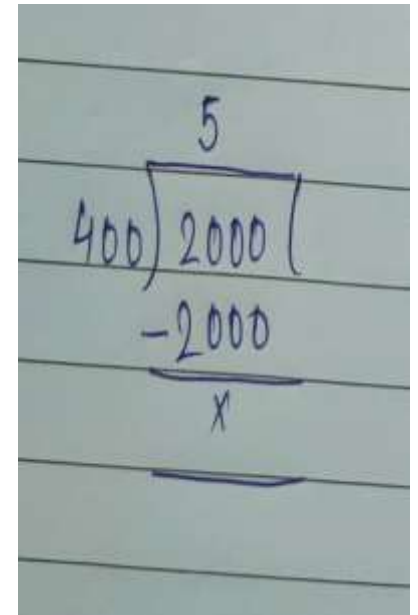 5
400) 2000 (
-2000
x